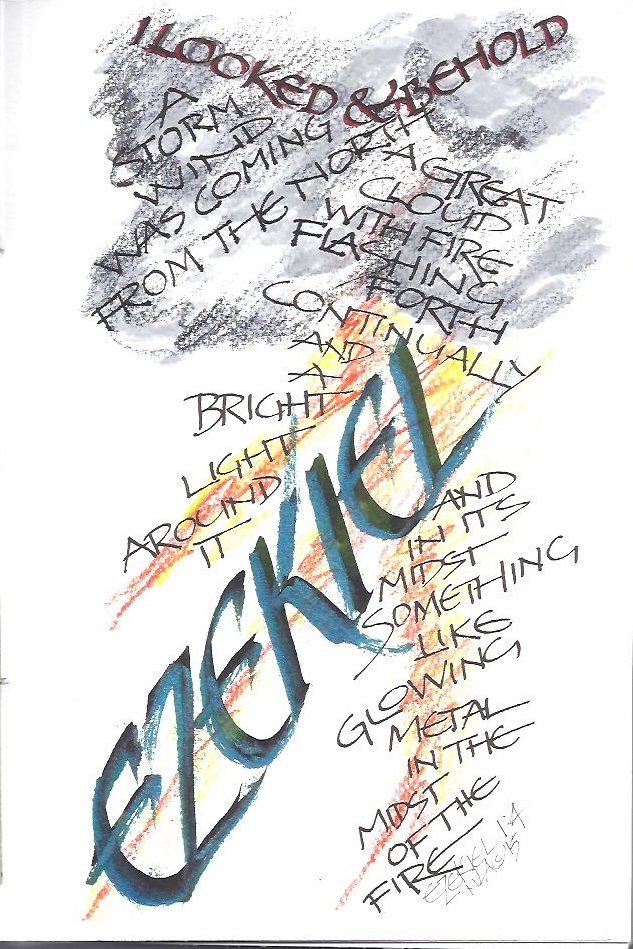 I LOOKED & BEHOLD
A
STORM
WIND
WAS COMING
FROM THE NORTH
A GREAT
CLOUD
WITH FIRE
FLASHING
FORTH
CONTINUALLY
AND
A
BRIGHT
LIGHT
AROUND
IT
EZEKIEL
AND
IN ITS
MIDST
SOMETHING
LIKE
GLOWING
METAL
IN THE
MIDST
OF THE
FIRE
EZEKIEL 1:4
NASB